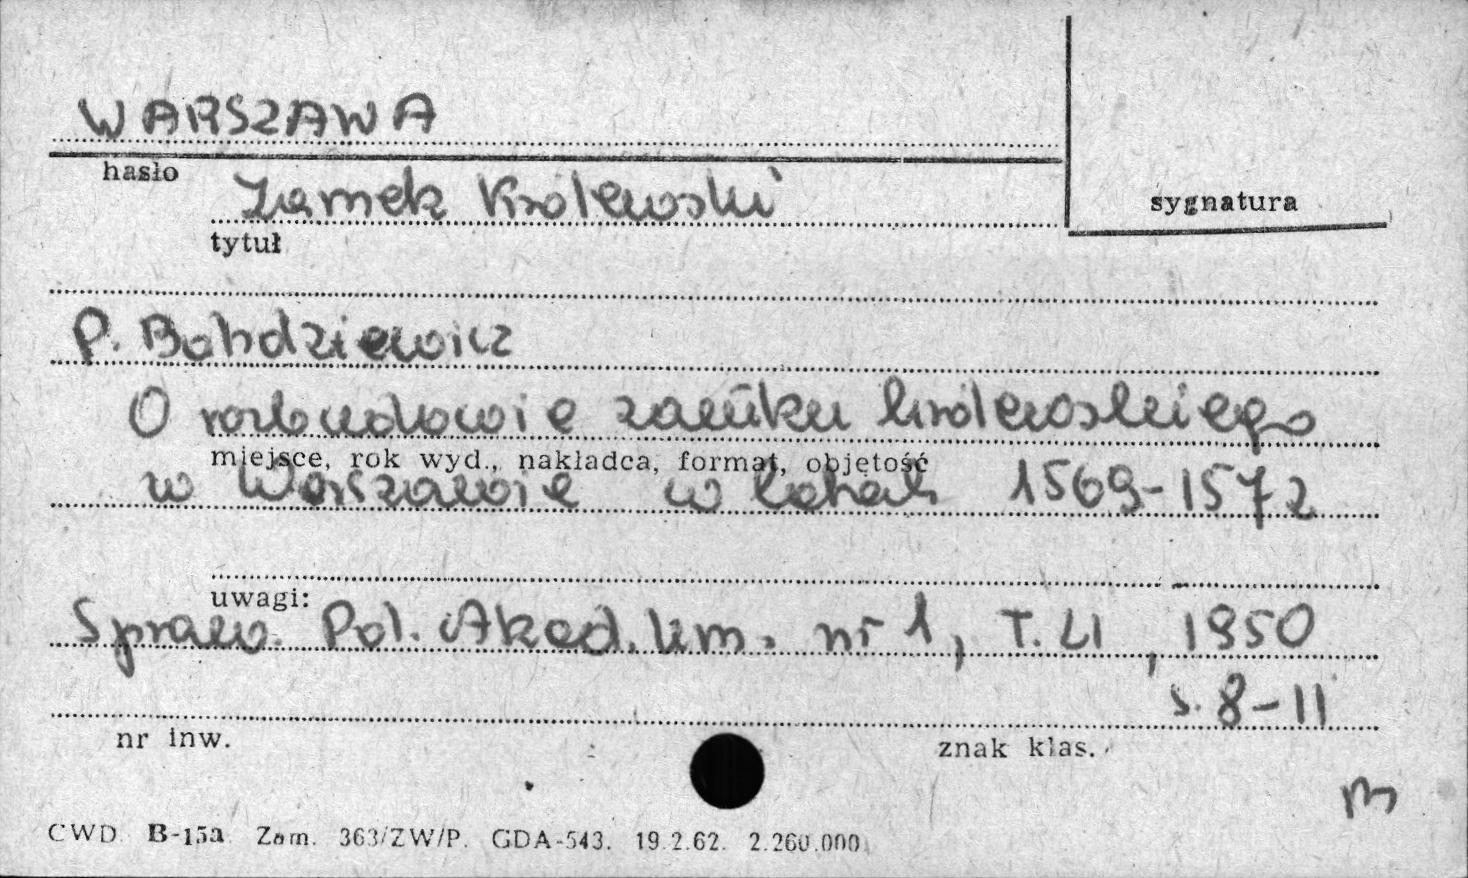 WARSZAWA
hasło
Zamek Królewski
sygnatura
tytuł
P. Bohdziewicz
O rozbudowie zamku królewskiego
miejsce, rok wyd., nakładca, format, objętość
w Warszawie w latach 1569-1572
uwagi:
Spraw. Pol. Akad. Um. nr 1, T. LI, 1950
s. 8-11
nr inw.
znak klas.
m
CWD B-15a Zam. 363/ZW/P. GDA-543. 19.2.62. 2.260.000